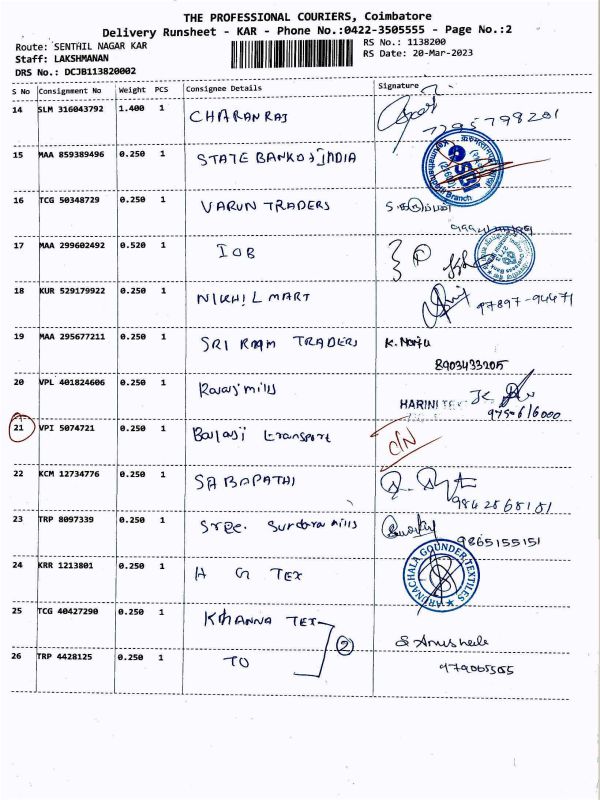 THE PROFESSIONAL COURIERS, Coimbatore
Delivery Runsheet - KAR - Phone No.:0422-3505555 - Page No.:2
Route: SENTHIL NAGAR KAR
RS No.: 1138200
Staff: LAKSHMANAN
RS Date: 20-Mar-2023
DRS No.: DCJB113820002
S No Consignment No Weight PCS Consignee Details Signature
14 SLM 316043792 1.400 1 CHARANRAJ
7795798201
15 MAA 859389496 0.250 1 STATE BANK OF INDIA
SBI
Branch
16 TCG 50348729 0.250 1 VARUN TRADERS
17 MAA 299602492 0.520 1 IOB
18 KUR 529179922 0.250 1 NIKHIL MART
97897-94471
19 MAA 295677211 0.250 1 SRI RAM TRADERS K. Narju
8903433205
20 VPL 401824606 0.250 1 Ravaj mills
HARINI TEX
21 VPI 5074721 0.250 1 Balaji transport
C/N
22 KCM 12734776 0.250 1 SABAPATHI
9842568181
23 TRP 8097339 0.250 1 Sree. Sundara mills
9865155151
24 KRR 1213801 0.250 1 H G TEX
ARUNACHALA GOUNDER TEXTILES
25 TCG 40427290 0.250 1 KHANNA TEX
2
26 TRP 4428125 0.250 1 TO